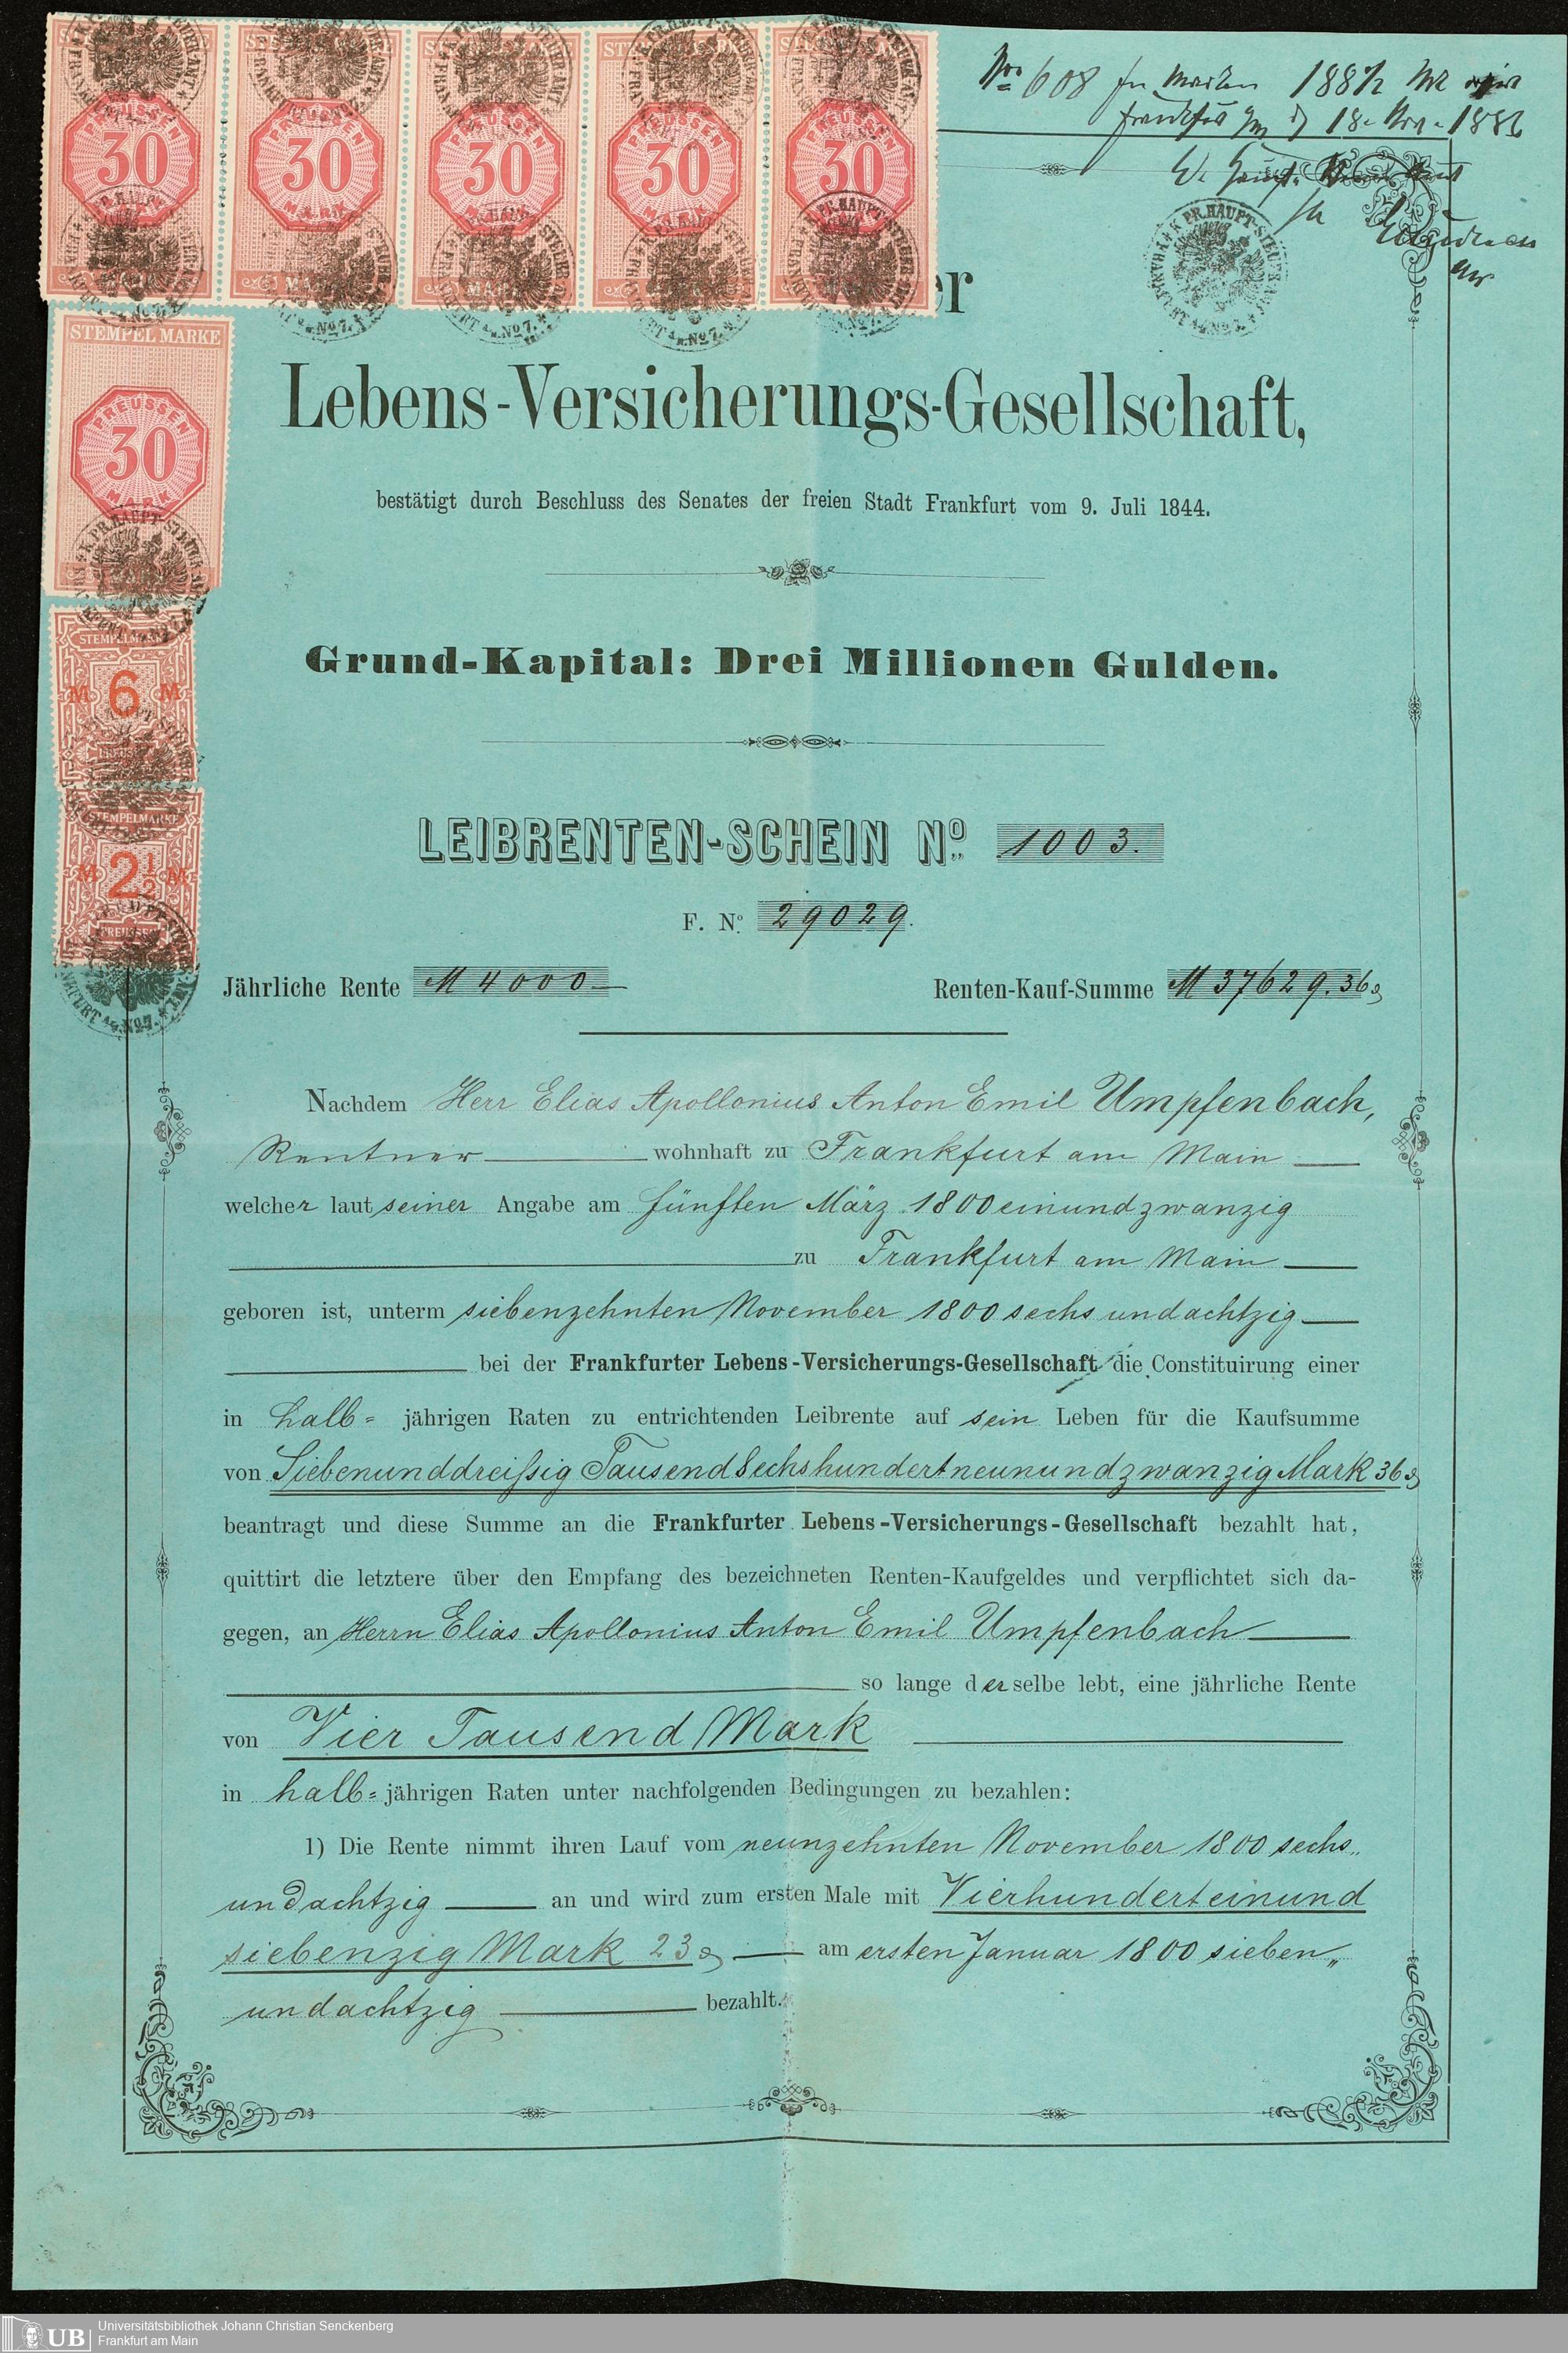 STEMPEL MARKE
PREUSSEN
30
MARK
PREUSSEN
30
MARK
PREUSSEN
30
MARK
PREUSSEN
30
MARK
PREUSSEN
30
MARK
No 608 In Marken 188½ Mk
18. Nov. 1886
er
STEMPEL MARKE
PREUSSEN
30
MARK
Lebens-Versicherungs-Gesellschaft,
bestätigt durch Beschluss des Senates der freien Stadt Frankfurt vom 9. Juli 1844.
STEMPELMARKE
M 6 M
PREUSSEN
Grund-Kapital: Drei Millionen Gulden.
STEMPELMARKE
M 2½ M
PREUSSEN
LEIBRENTEN-SCHEIN No. 1003.
F. No. 29029.
Jährliche Rente M 4000 —
Renten-Kauf-Summe M 37629.36 ₰
Nachdem Herr Elias Apollonius Anton Emil Umpfenbach,
Rentner — wohnhaft zu Frankfurt am Main —
welcher laut seiner Angabe am fünften März 1800 einundzwanzig
— zu Frankfurt am Main —
geboren ist, unterm siebenzehnten November 1800 sechs undachtzig —
— bei der Frankfurter Lebens-Versicherungs-Gesellschaft die Constituirung einer
in halb= jährigen Raten zu entrichtenden Leibrente auf sein Leben für die Kaufsumme
von Siebenunddreißig Tausend Sechshundertneunundzwanzig Mark 36 ₰
beantragt und diese Summe an die Frankfurter Lebens-Versicherungs-Gesellschaft bezahlt hat,
quittirt die letztere über den Empfang des bezeichneten Renten-Kaufgeldes und verpflichtet sich da-
gegen, an Herrn Elias Apollonius Anton Emil Umpfenbach —
— so lange derselbe lebt, eine jährliche Rente
von Vier Tausend Mark —
in halb= jährigen Raten unter nachfolgenden Bedingungen zu bezahlen:
1) Die Rente nimmt ihren Lauf vom neunzehnten November 1800 sechs„
undachtzig — an und wird zum ersten Male mit Vierhunderteinund
siebenzig Mark 23 ₰ — am ersten Januar 1800 sieben„
undachtzig — bezahlt.
UB Universitätsbibliothek Johann Christian Senckenberg
Frankfurt am Main